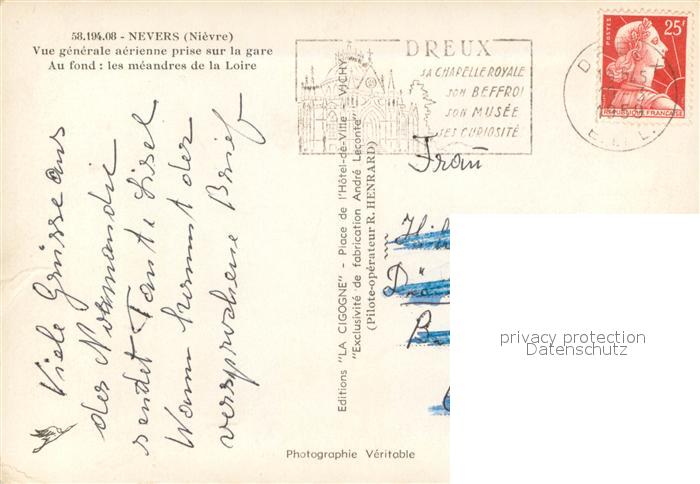 58.194.08 - NEVERS (Nièvre)
Vue générale aérienne prise sur la gare
Au fond : les méandres de la Loire
Viele Grüsse aus
der Normandie
sendet Tante Lisel
Wann kommt der
versprochene Brief
Editions "LA CIGOGNE" - Place de l'Hôtel-de-Ville - VICHY
"Exclusivité de fabrication André Leconte"
(Pilote-opérateur R. HENRARD)
Photographie Véritable
DREUX
SA CHAPELLE ROYALE
SON BEFFROI
SON MUSÉE
SES CURIOSITÉ
25F
REPUBLIQUE FRANÇAISE
Frau
privacy protection
Datenschutz